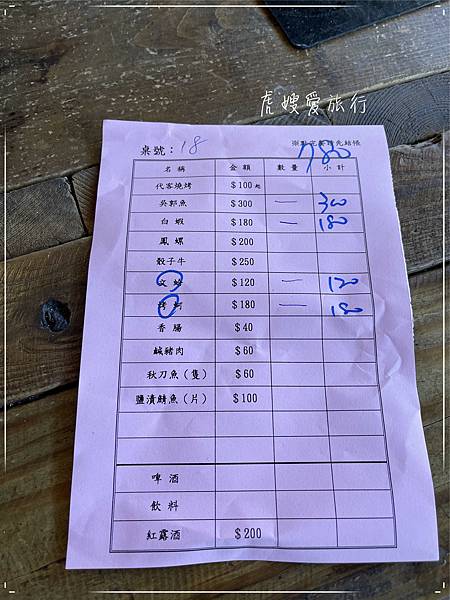 虎嫂愛旅行
桌號：18
※點完餐請先結帳
780
名稱 金額 數量 小計
代客燒烤 $100起
吳郭魚 $300 一 300
白蝦 $180 一 180
鳳螺 $200
骰子牛 $250
文蛤 $120 一 120
烤蚵 $180 一 180
香腸 $40
鹹豬肉 $60
秋刀魚（隻） $60
鹽漬鯖魚（片） $100
啤酒
飲料
紅露酒 $200